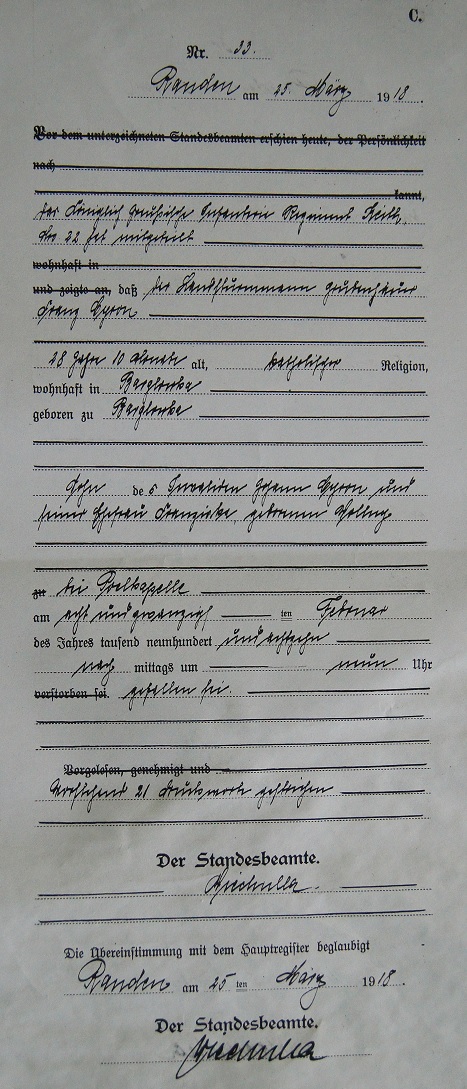 C.
Nr. 33.
Rauden am 25. März 1918.
Vor dem unterzeichneten Standesbeamten erschien heute, der Persönlichkeit
nach
kannt,
Das Königlich Preußische Infanterie Regiment Keith
Nro 22 hat mitgeteilt
wohnhaft in
und zeigte an, daß der Landsturmmann Grubenhäuer
Franz Cyron
28 Jahre 10 Monate alt, katholischer Religion,
wohnhaft in Barglowka
geboren zu Barglowka
Sohn des Invaliden Johann Cyron und
seiner Ehefrau Franziska, geborenen
zu bei Poelkapelle
am acht und zwanzigsten Februar
des Jahres tausend neunhundert und achtzehn
nach mittags um neun Uhr
verstorben sei. gefallen sei.
Vorgelesen, genehmigt und
Vorstehend 21 Druckworte gestrichen
Der Standesbeamte.
Wiechulla.
Die Übereinstimmung mit dem Hauptregister beglaubigt
Rauden am 25ten März 1918.
Der Standesbeamte.
Wiechulla